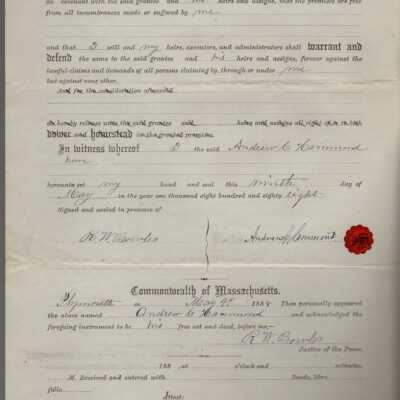 do covenant with the said grantee and his heirs and assigns, that the premises are free
from all incumbrances made or suffered by me
and that I will and my heirs, executors, and administrators shall warrant and
defend the same to the said grantee and his heirs and assigns, forever against the
lawful claims and demands of all persons claiming by, through or under me
but against none other.
And for the consideration aforesaid
do hereby release unto the said grantee and heirs and assigns all right of or to both
dower and homestead in the granted premises.
In witness whereof I the said Andrew C Hammond
have
hereunto set my hand and seal this ninth day of
May in the year one thousand eight hundred and eighty eight.
Signed and sealed in presence of
R. W. Bowler
Andrew C Hammond
Commonwealth of Massachusetts.
Plymouth ss May 9th 1888 Then personally appeared
the above named Andrew C Hammond and acknowledged the
foregoing instrument to be his free act and deed, before me,
R. W. Bowler
Justice of the Peace.
188 at o'clock and minutes
M. Received and entered with Deeds, libro
folio
Attest: